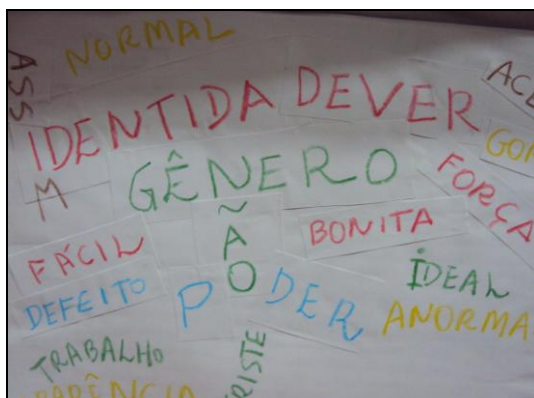 NORMAL
ASS
ACE
IDENTIDA DEVER
GOR
M
GÊNERO
FORÇA
NÃO
BONITA
FÁCIL
IDEAL
DEFEITO
PODER
ANORMA
TRABALHO
RISTE
PARÊNCIA